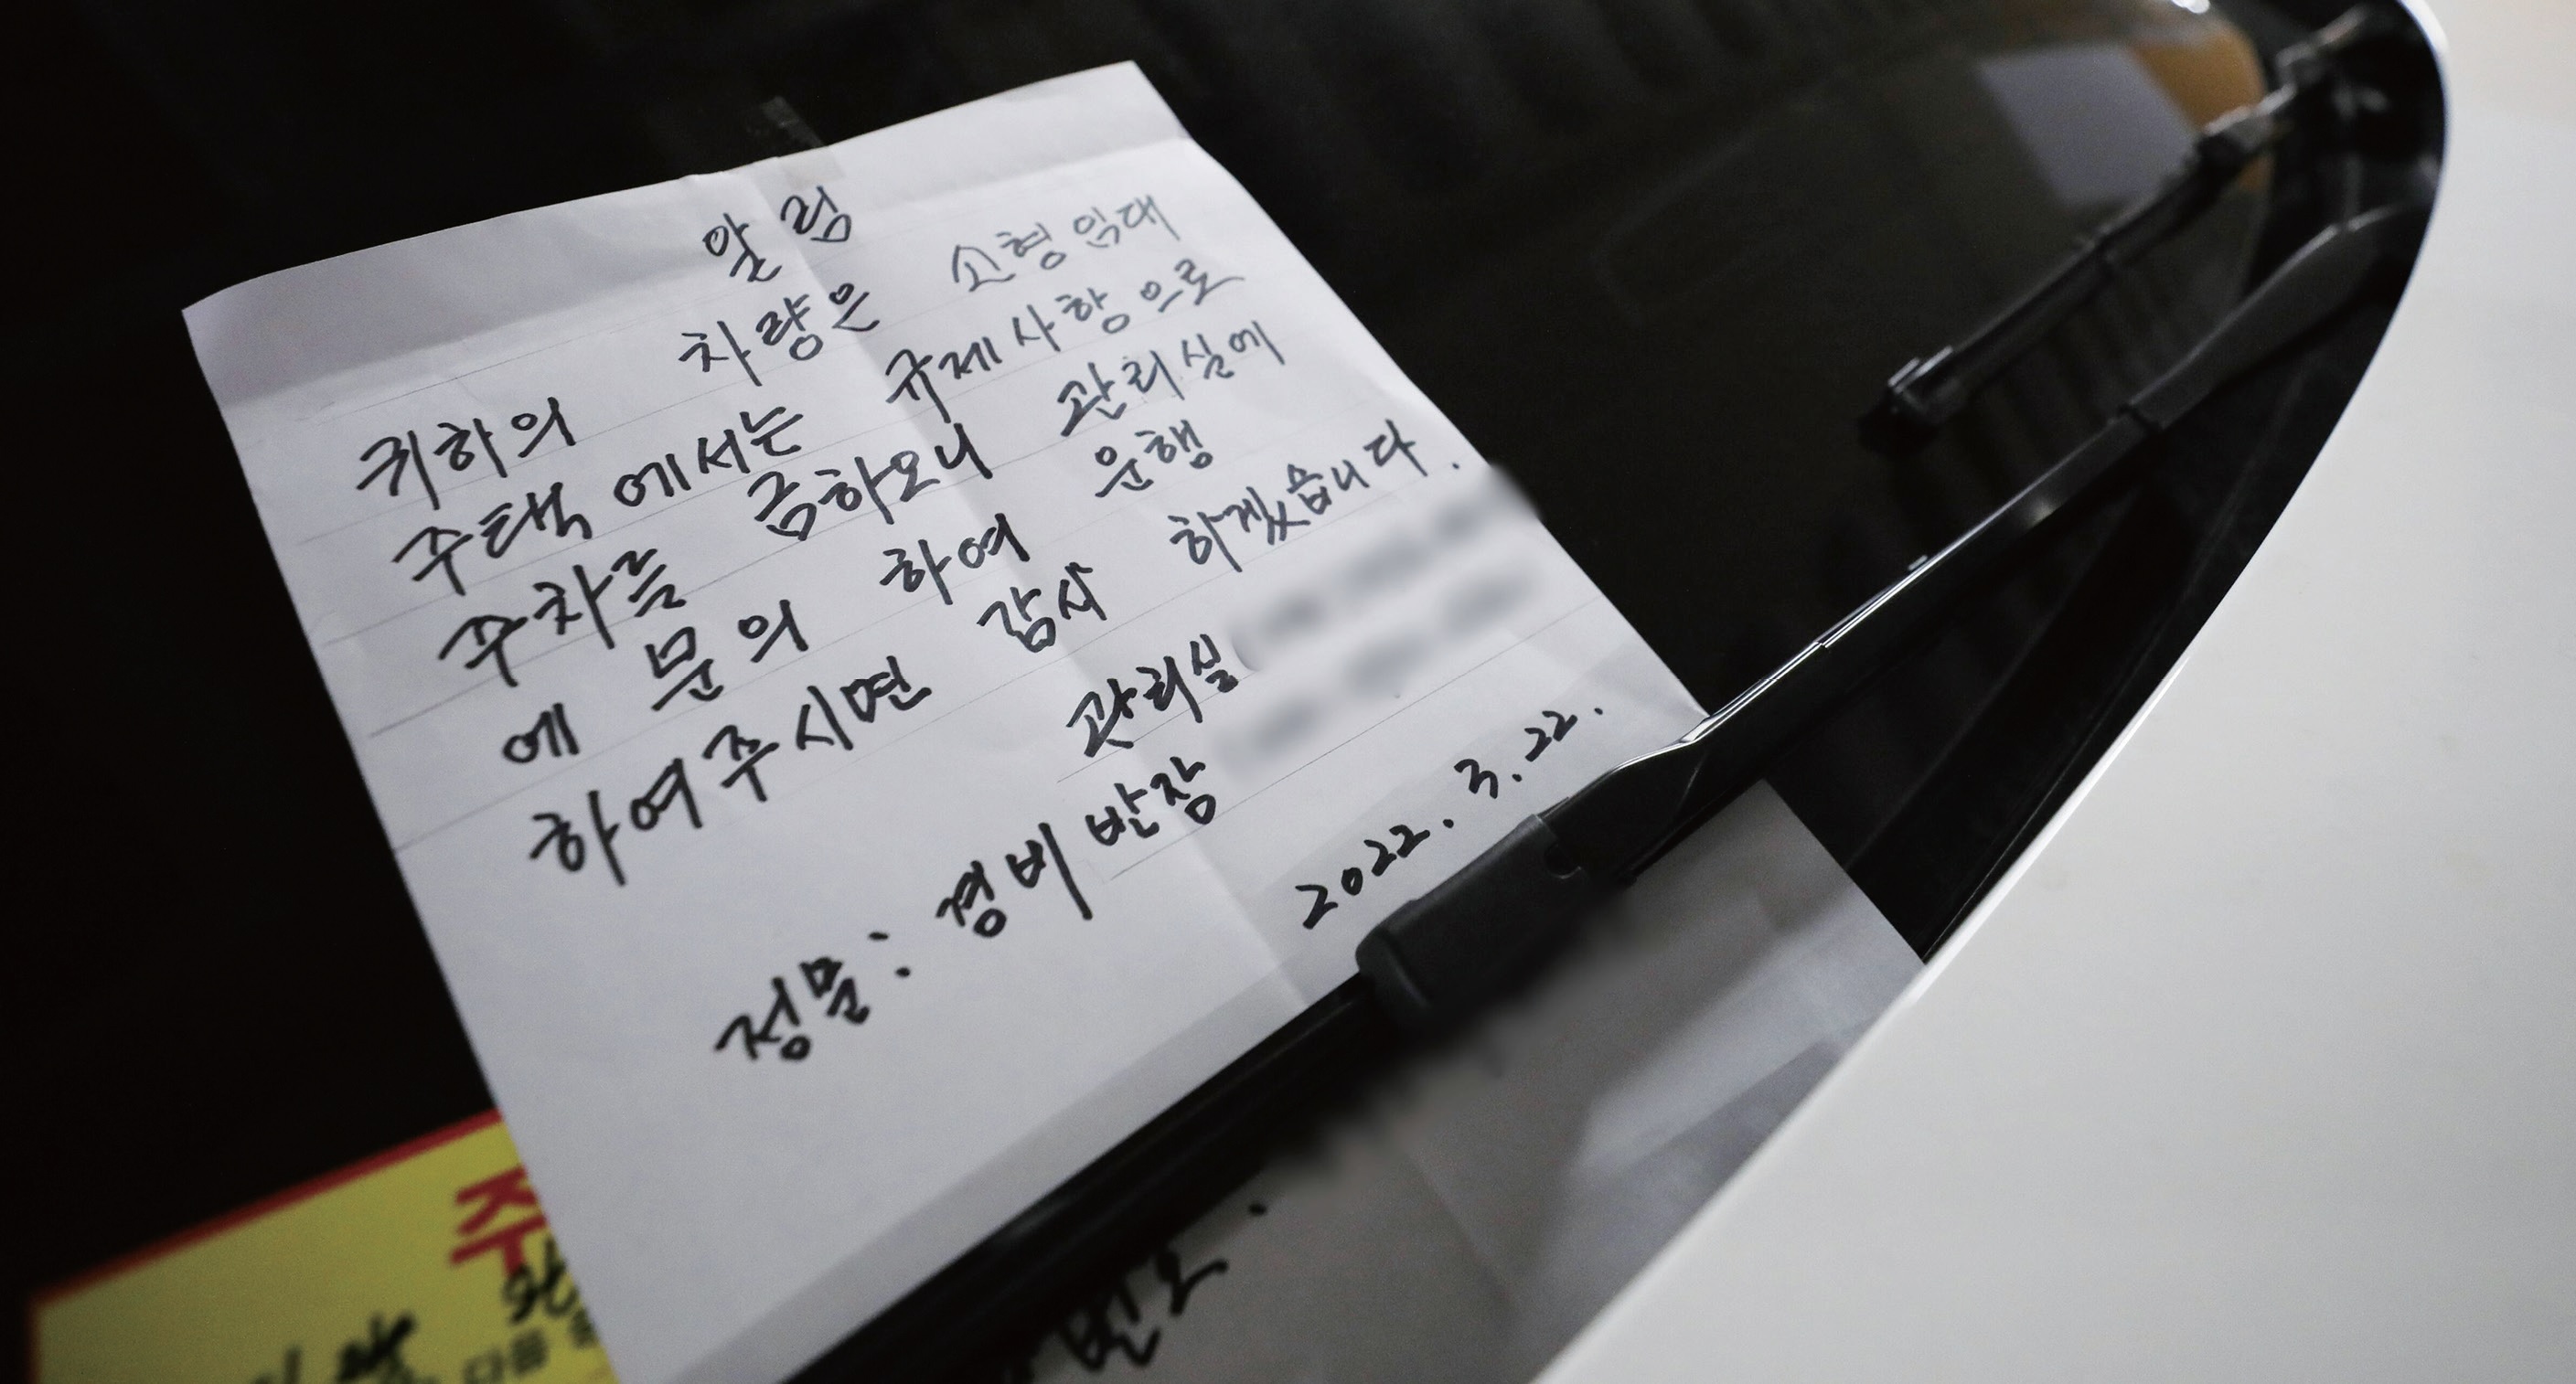 알림
귀하의 차량은 소형임대
주택에서는 규제사항으로
주차를 금하오니 관리실에
에 문의 하여 운행
하여주시면 감사 하겠습니다.
관리실
정문: 경비반장
2022. 3. 22.
주